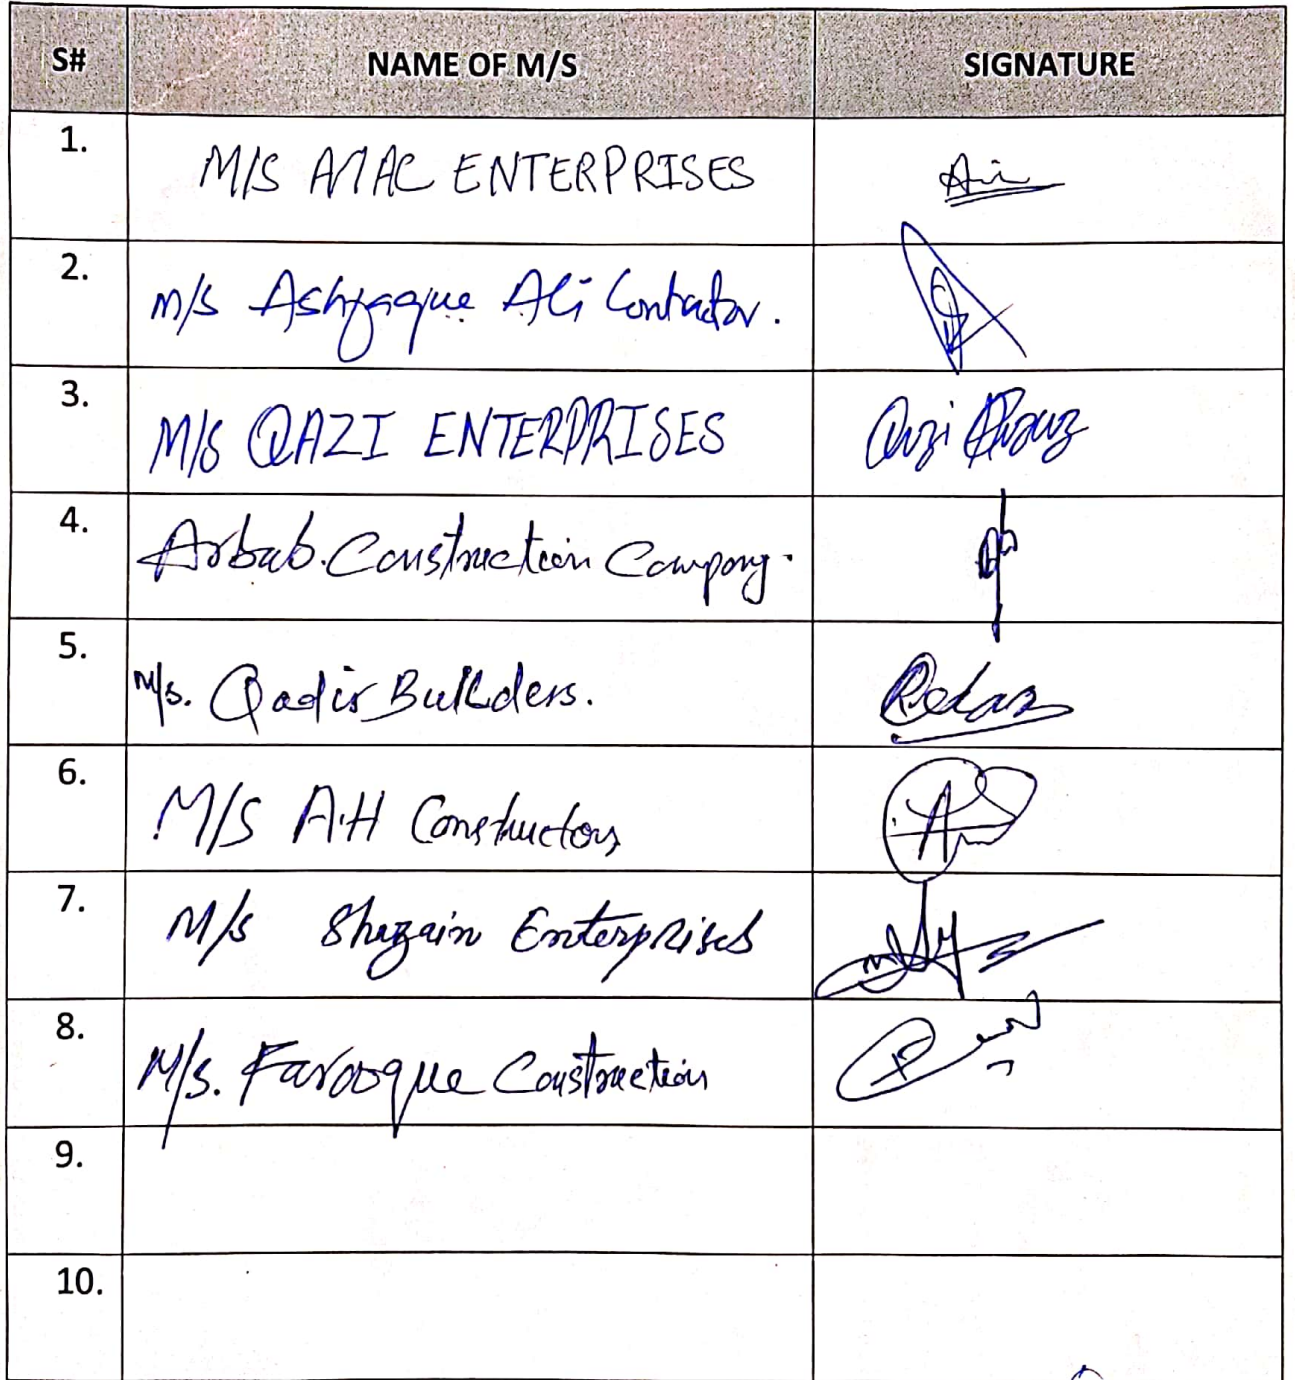 S# NAME OF M/S SIGNATURE
1. M/S ENTERPRISES
2. M/S Ashfaque Ali Contractor.
3. M/S QAZI ENTERPRISES Qazi
4. Arbab Construction Company.
5. M/s. Qadir Builders.
6. M/S A.H Constructors
7. M/s Shazain Enterprises
8. M/s. Farooque Construction
9.
10.